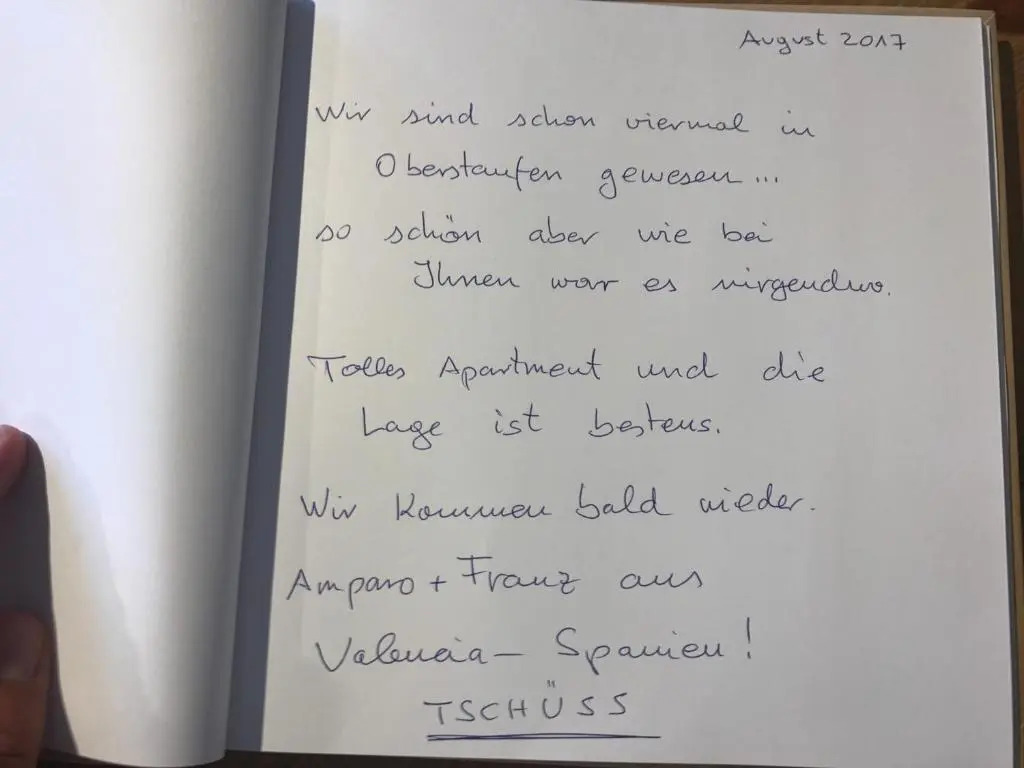 August 2017
Wir sind schon viermal in
Oberstaufen gewesen...
so schön aber wie bei
Ihnen war es nirgendwo.
Tolles Apartment und die
Lage ist bestens.
Wir kommen bald wieder.
Amparo + Franz aus
Valencia – Spanien!
TSCHÜSS